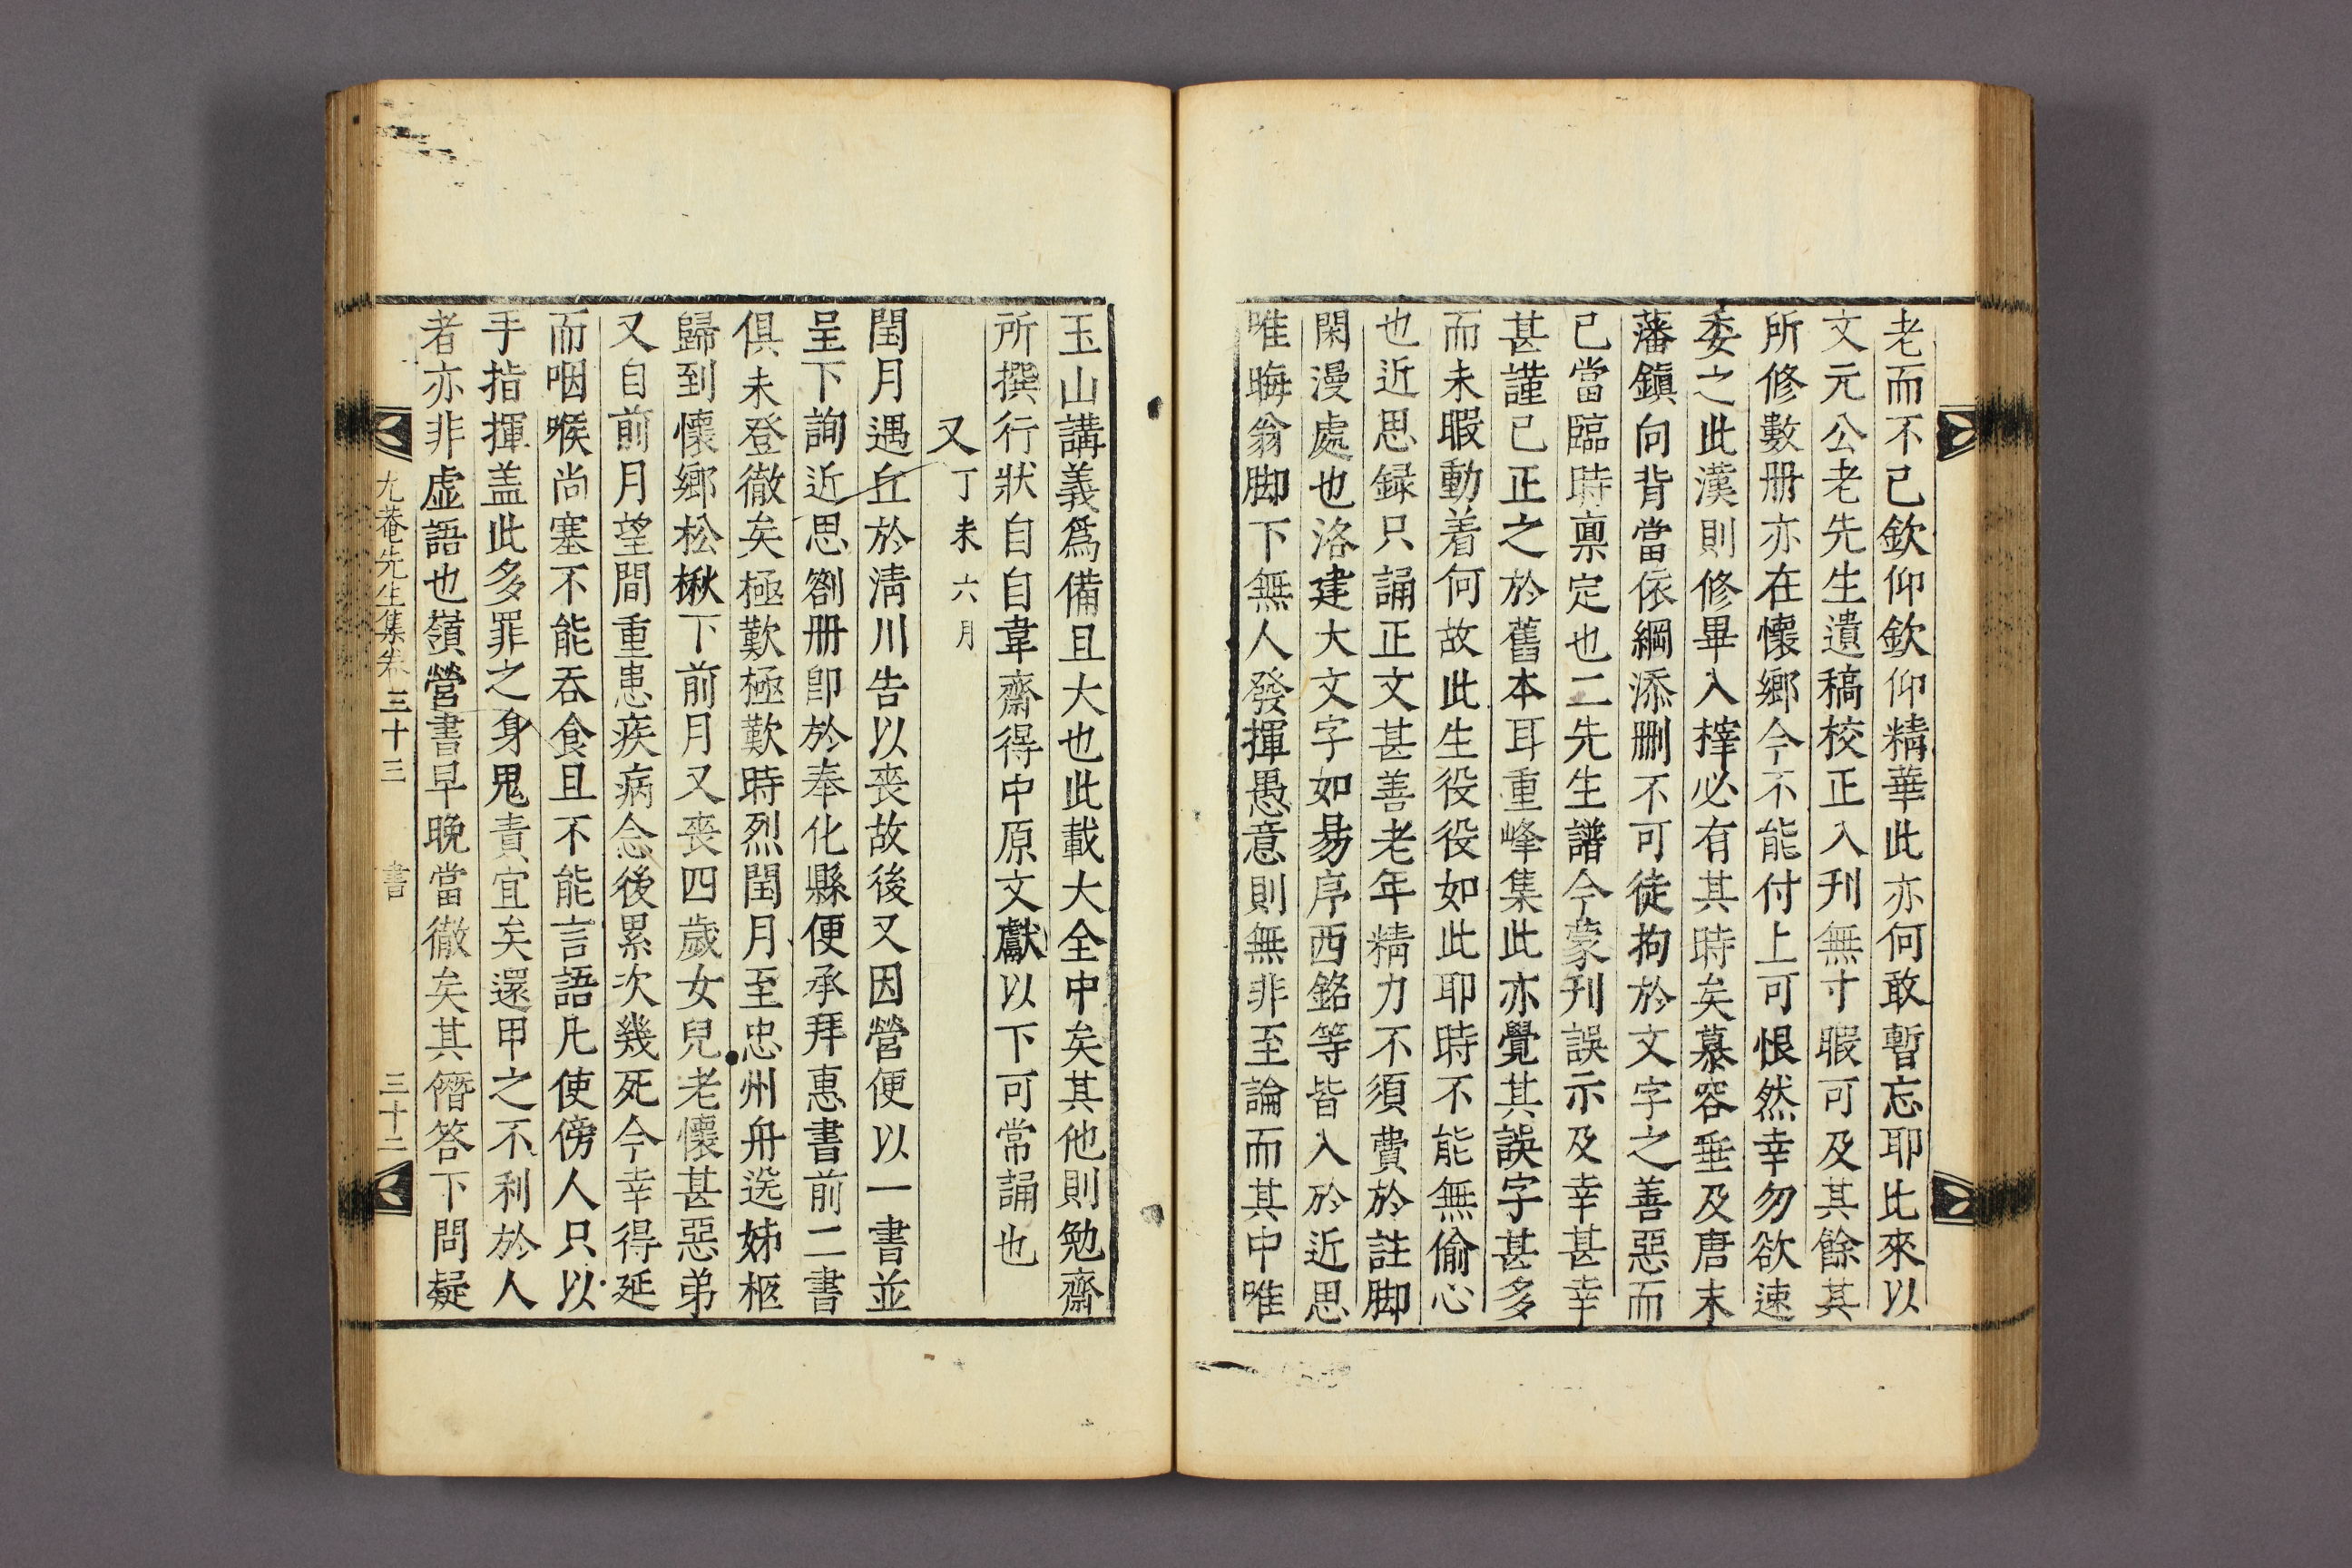 老而不已欽仰欽仰精華此亦何敢暫忘耶比來以
文元公老先生遺稿校正入刊無寸暇可及其餘其
所修數册亦在懷鄉今不能付上可恨然幸勿欲速
委之此漢則修畢入梓必有其時矣慕容垂及唐末
藩鎭向背當依綱添刪不可徒拘於文字之善惡而
已當臨時稟定也二先生譜今蒙刊誤示及幸甚幸
甚謹已正之於舊本耳重峰集此亦覺其誤字甚多
而未暇動着何故此生役役如此耶時不能無偷心
也近思録只誦正文甚善老年精力不須費於註脚
閑漫處也洛建大文字如易序西銘等皆入於近思
唯晦翁脚下無人發揮愚意則無非至論而其中唯
玉山講義爲備且大也此載大全中矣其他則勉齋
所撰行狀自自韋齋得中原文獻以下可常誦也
又丁未六月
閏月遇丘於淸川告以喪故後又因營便以一書並
呈下詢近思劄册卽於奉化縣便承拜惠書前二書
俱未登徹矣極歎極歎時烈閏月至忠州舟送姊柩
歸到懷鄉松楸下前月又喪四歲女兒老懷甚惡弟
又自前月望間重患疾病念後累次幾死今幸得延
而咽喉尚塞不能呑食且不能言語凡使傍人只以
手指揮盖此多罪之身鬼責宜矣還甲之不利於人
者亦非虛語也嶺營書早晩當徹矣其僭答下問疑
尤菴先生集卷三十三 書 三十二